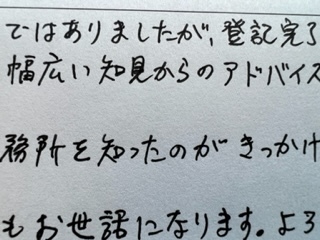 ではありましたが、登記完了
幅広い知見からのアドバイス
務所を知ったのがきっかけ
もお世話になります。よろ